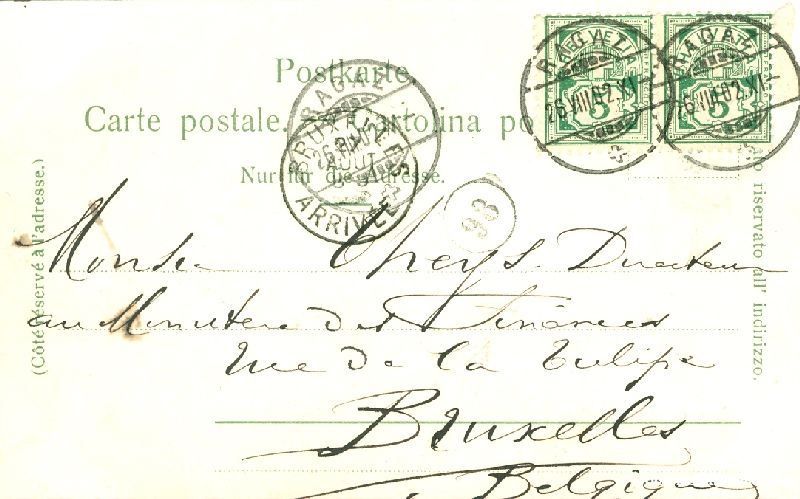 Postkarte.
Carte postale. Cartolina po
Nur für die Adresse.
(Côté réservé à l'adresse.)
o riservato all' indirizzo.
RAGAZ
26.VIII.02.XI
RAGAZ
26.VIII.02.XI
5
5
RAGAZ
BRUXELLES
AOUT
ARRIVÉE
98
Monsie Theys. Directeur
au Ministère des Finances
Rue de la Tulipe
Bruxelles
Belgique